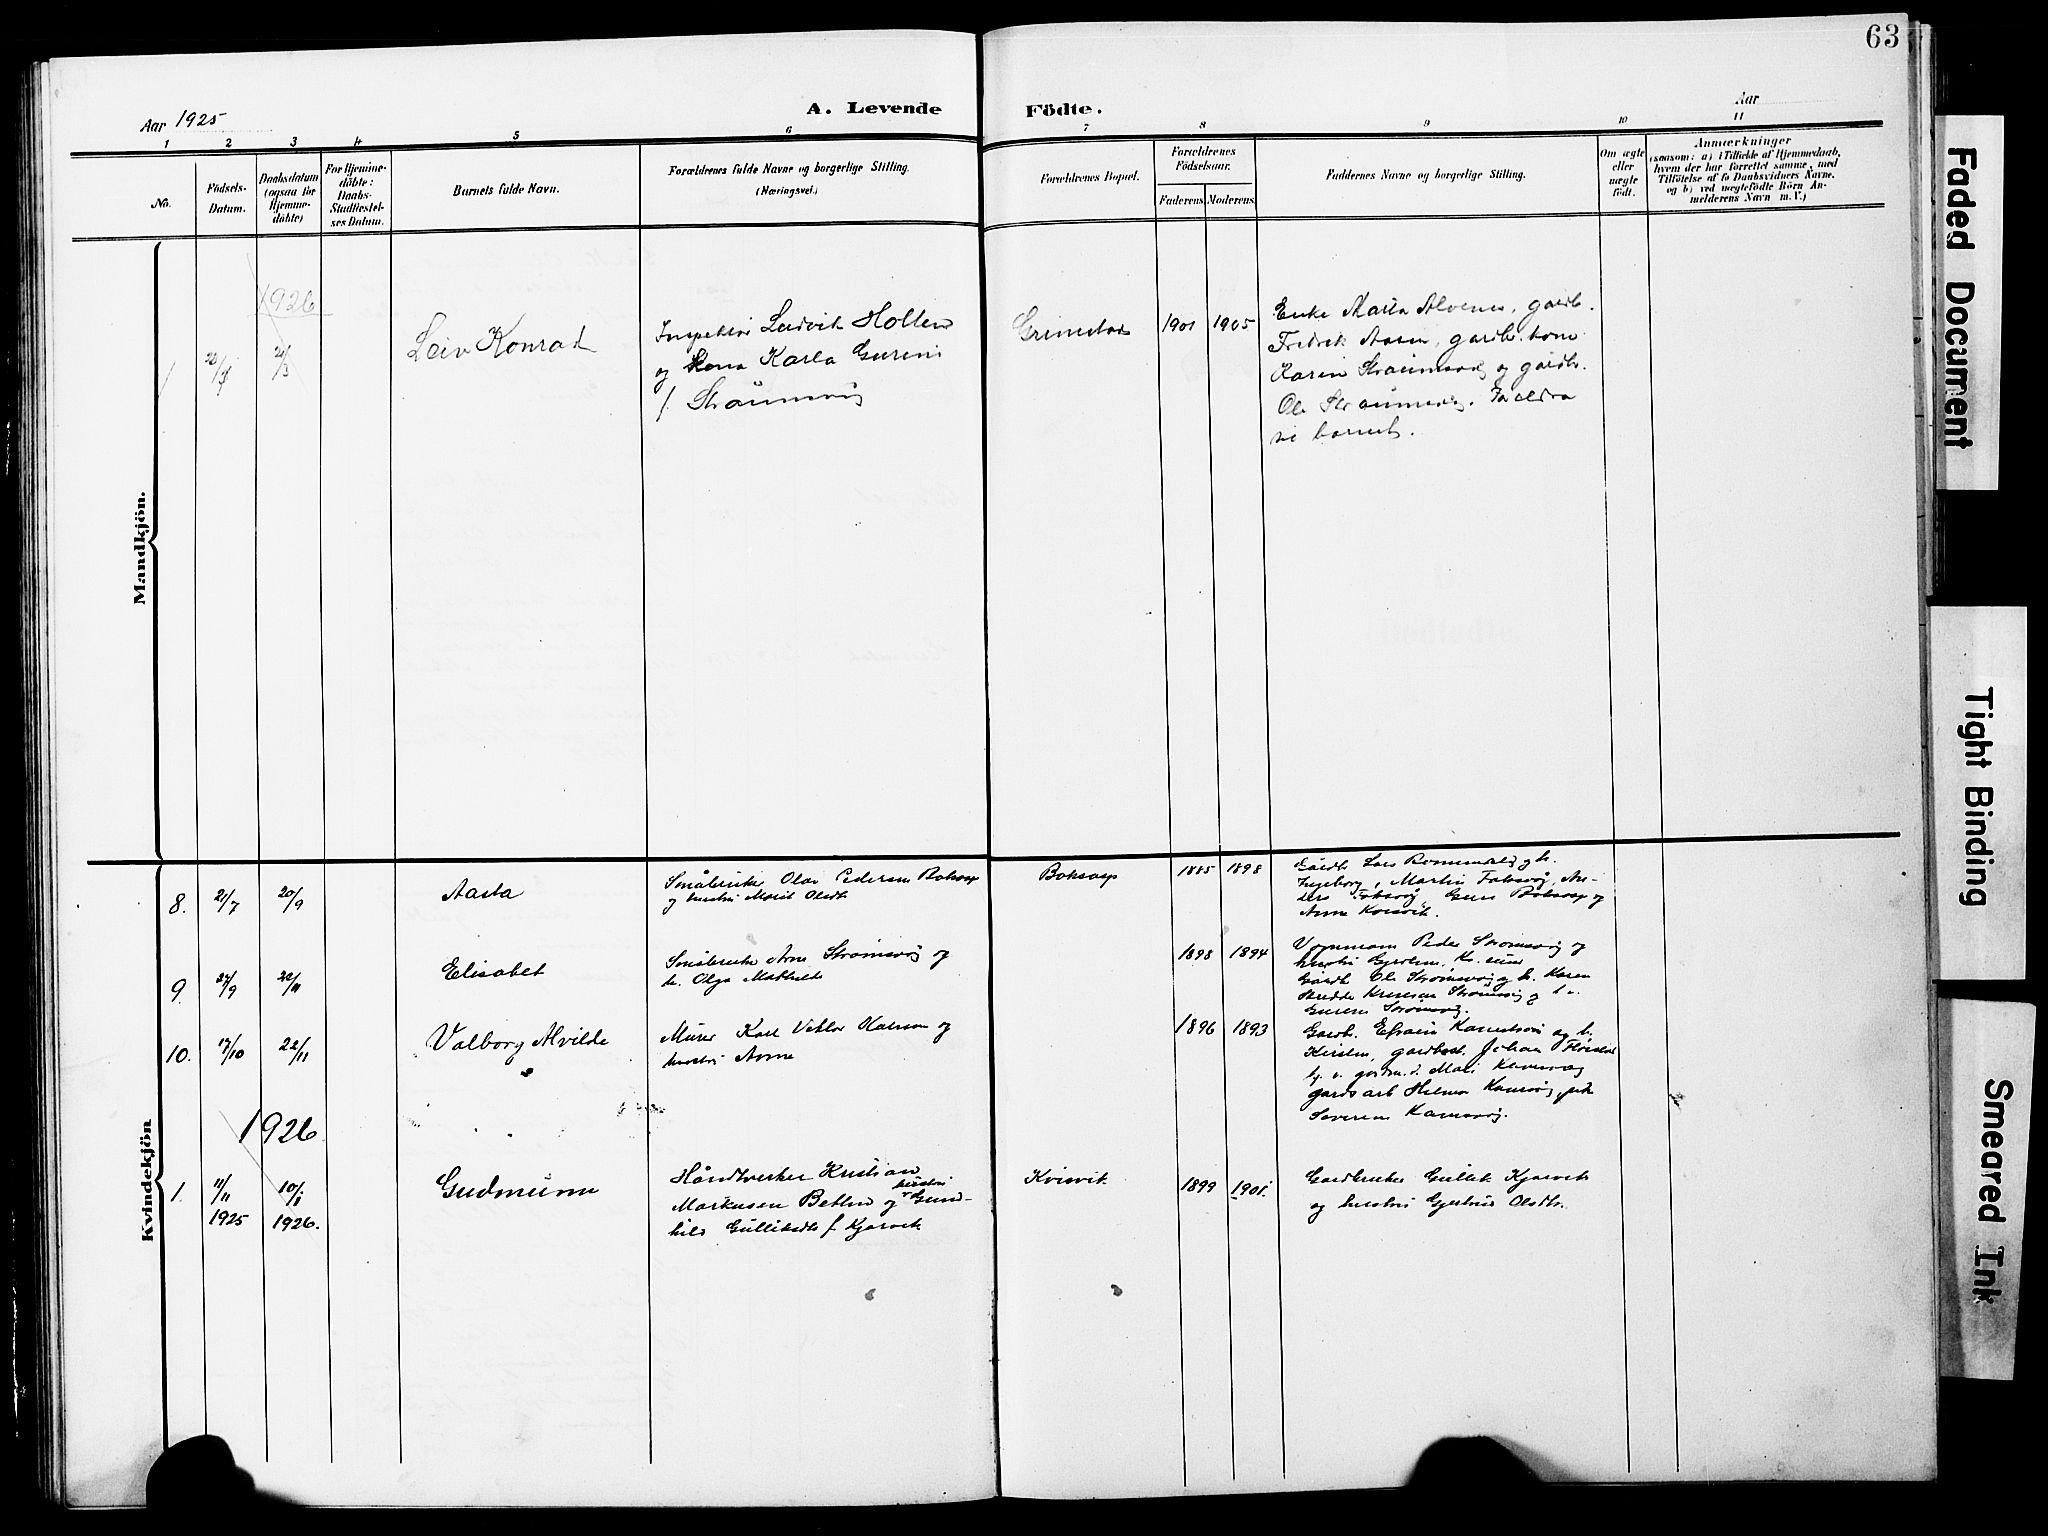 63
Aar 1925
A. Levende Födte.
Aar
1 2 3 4 5 6 7 8 9 10 11
No.
Födsels-
Datum.
Daabsdatum
(ogsaa for
Hjemme-
döbte)
For Hjemme-
döbte:
Daabs-
Stadfæstel-
ses Datum.
Barnets fulde Navn.
Forældrenes fulde Navne og borgerlige Stilling.
(Næringsvei.)
Forældrenes Bopæl.
Forældrenes
Födselsaar.
Faderens Moderens
Faddernes Navne og borgerlige Stilling.
Om ægte
eller
uægte
födt.
Anmærkninger
(saasom: a) i Tilfælde af Hjemmedaab,
hvem der har forrettet samme, med
Tilföielse af to Daabsvidners Navne,
og b) ved uægtefödte Börn An-
melderens Navn m. V.)
Mandkjön.
1926
Leiv Konrad
Inspektör Ludvik Holten
og kona Karla Gurine
f. Straumsvig
Grimstad
1901 1905
Enke Marta Alvenes, gardb.
Fredrik Aasen, gardb. kone
Karen Straumsvig og gardbr.
Ole Straumsvig. Foreldra
til barnet.
Kvindekjön
8. 21/7 20/9
Aasta
Småbruker Olav Pedersen Boksasp
og hustru Marit Olsdt
Boksasp
1885 1898
Gardb. Lars Romundstad og h.
Ingeborg, Martin Foksvåg, An-
ders Foksvåg, Guri Boksasp og
Anne Korsvik.
9. 24/9 22/11
Elisabet
Småbruker Arne Strömsvåg og
h. Olga Mathilde
1898 1894
Peder Strömsvåg og
hustru
Gardb. Ole Strömsvåg og h. Karen
Strömsvåg og
Gurine Strömsvåg.
10. 17/10 22/11
Valborg Alvilde
Murer Karl Viktor Karlsen og
hustru Anne
1896 1893
Gardb. Efraim Kanestrøm og h.
Kirsten, gardbest. Johan
Mali Kanesvåg
gardsarb Hilmar Kanesvåg, pike
Severine Kanesvåg.
1926
1. 11/11 1925 10/1 1926.
Gudmunn
Håndtverker Kristian
Markusen Betten og hustru Gun-
hild Gulliksdt f. Kjørsvik
Kvisvik
1899 1901
Gardbruker Gullik Kjørsvik
og hustru Gjertrud Olsdtr.
Faded Document
Tight Binding
Smeared Ink